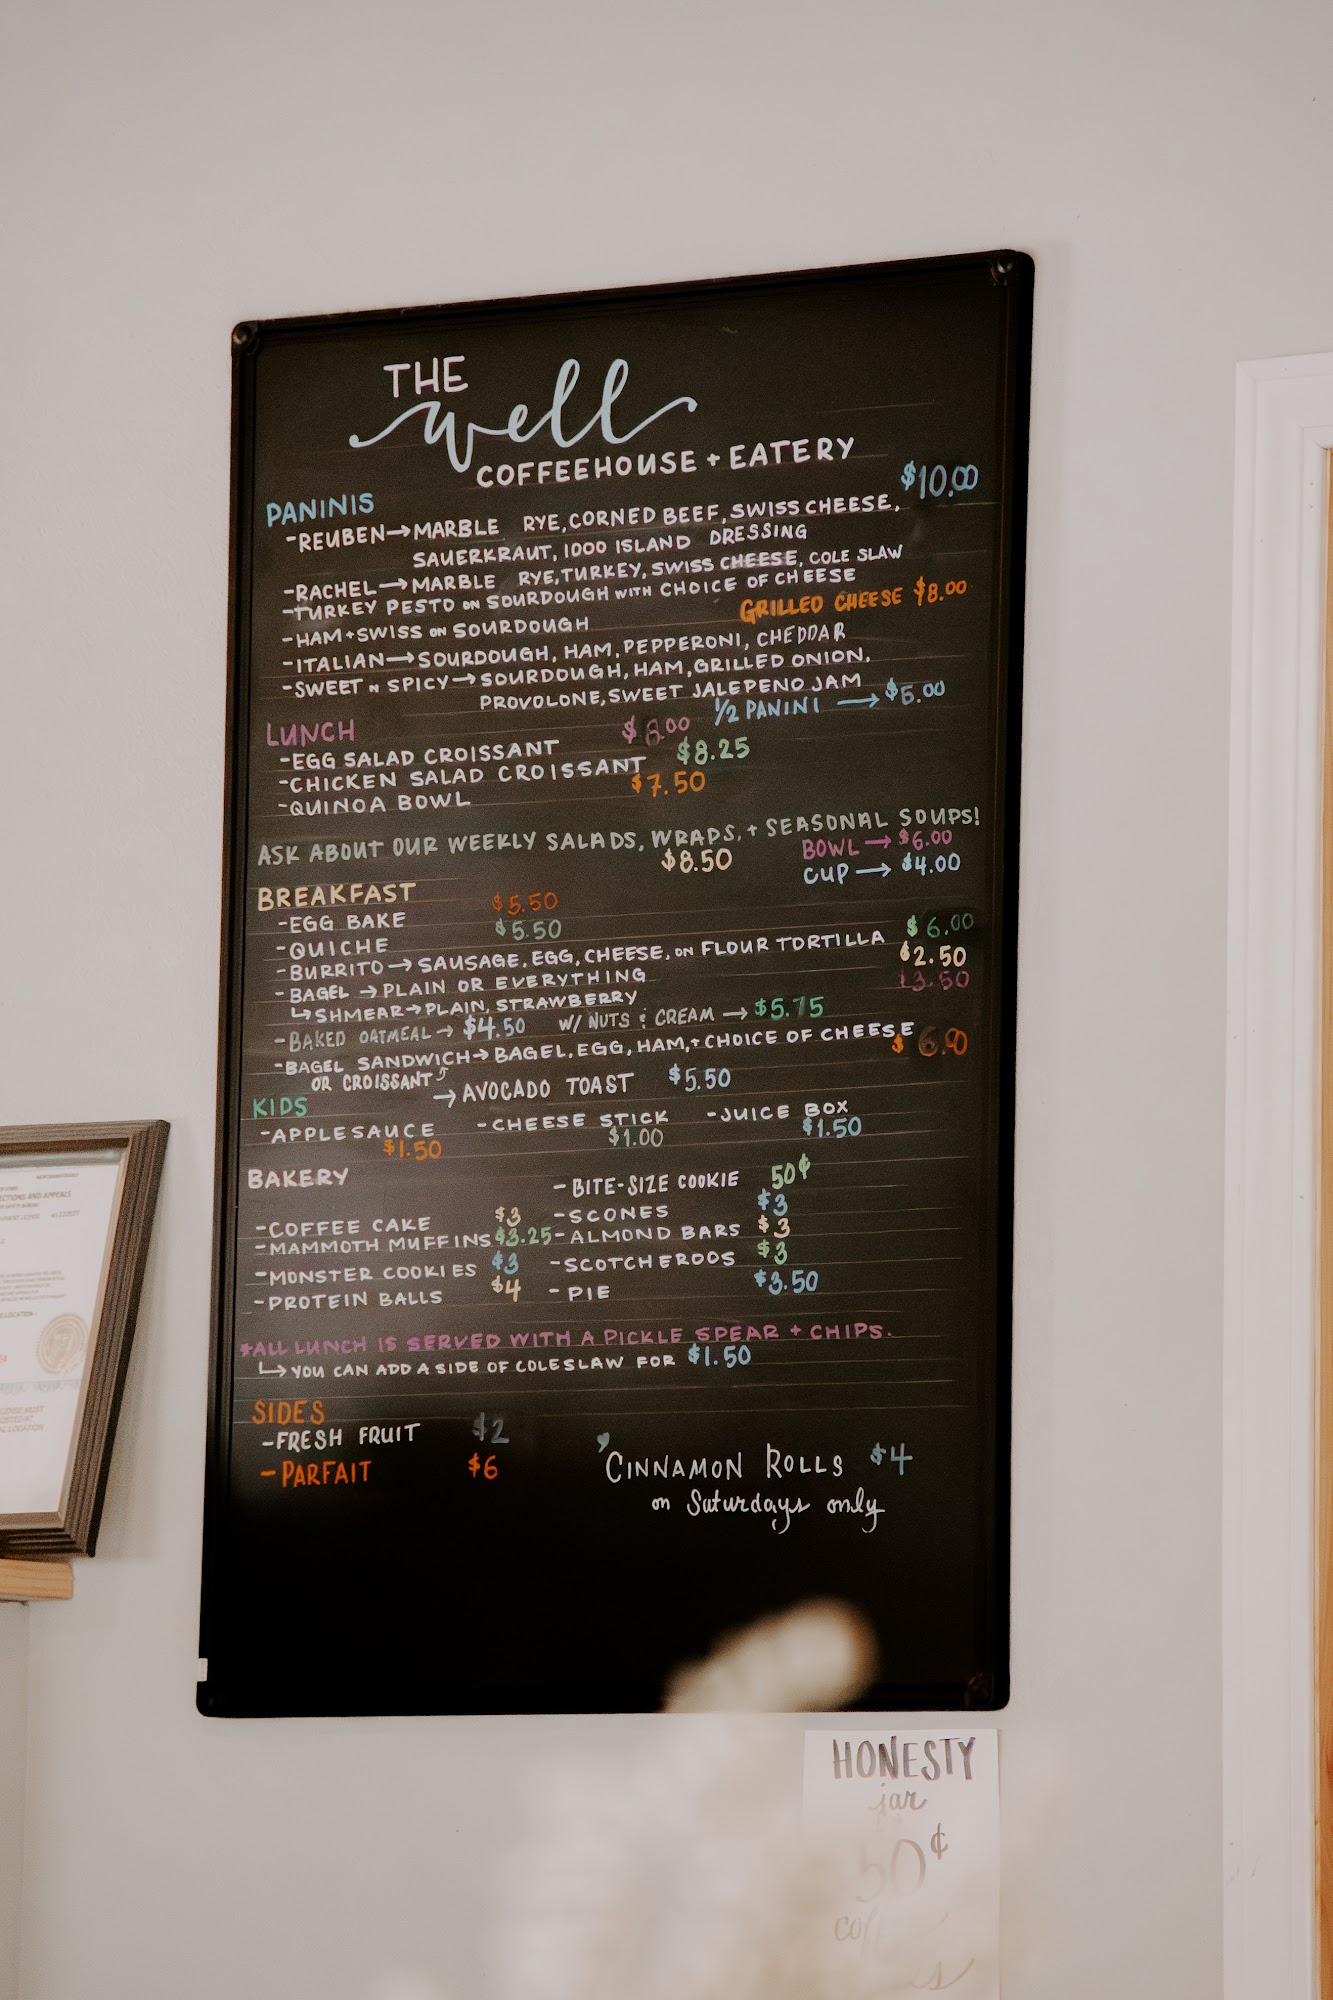 THE
well
COFFEEHOUSE + EATERY
PANINIS $10.00
-REUBEN→MARBLE RYE, CORNED BEEF, SWISS CHEESE,
SAUERKRAUT, 1000 ISLAND DRESSING
-RACHEL→MARBLE RYE, TURKEY, SWISS CHEESE, COLE SLAW
-TURKEY PESTO ON SOURDOUGH WITH CHOICE OF CHEESE
GRILLED CHEESE $8.00
-HAM+SWISS ON SOURDOUGH
-ITALIAN→SOURDOUGH, HAM, PEPPERONI, CHEDDAR
-SWEET N SPICY→SOURDOUGH, HAM, GRILLED ONION,
PROVOLONE, SWEET JALEPENO JAM
1/2 PANINI → $5.00
LUNCH
-EGG SALAD CROISSANT $8.00
-CHICKEN SALAD CROISSANT $8.25
-QUINOA BOWL $7.50
ASK ABOUT OUR WEEKLY SALADS, WRAPS, + SEASONAL SOUPS!
$8.50 BOWL → $6.00
CUP → $4.00
BREAKFAST
-EGG BAKE $5.50
-QUICHE $5.50
-BURRITO→SAUSAGE, EGG, CHEESE, ON FLOUR TORTILLA $6.00
-BAGEL →PLAIN OR EVERYTHING $2.50
↳SHMEAR→PLAIN, STRAWBERRY $3.50
-BAKED OATMEAL→ $4.50 W/ NUTS & CREAM → $5.75
-BAGEL SANDWICH→BAGEL, EGG, HAM, + CHOICE OF CHEESE
OR CROISSANT⤴
→AVOCADO TOAST $5.50
KIDS
-APPLESAUCE -CHEESE STICK -JUICE BOX
$1.50 $1.00 $1.50
BAKERY
-BITE-SIZE COOKIE 50¢
-COFFEE CAKE $3 -SCONES $3
-MAMMOTH MUFFINS $3.25 -ALMOND BARS $3
-MONSTER COOKIES $3 -SCOTCHEROOS $3
-PROTEIN BALLS $4 -PIE $3.50
*ALL LUNCH IS SERVED WITH A PICKLE SPEAR + CHIPS.
↳YOU CAN ADD A SIDE OF COLESLAW FOR $1.50
SIDES
-FRESH FRUIT $2
-PARFAIT $6
CINNAMON ROLLS $4
on Saturdays only
HONESTY
jar
50¢